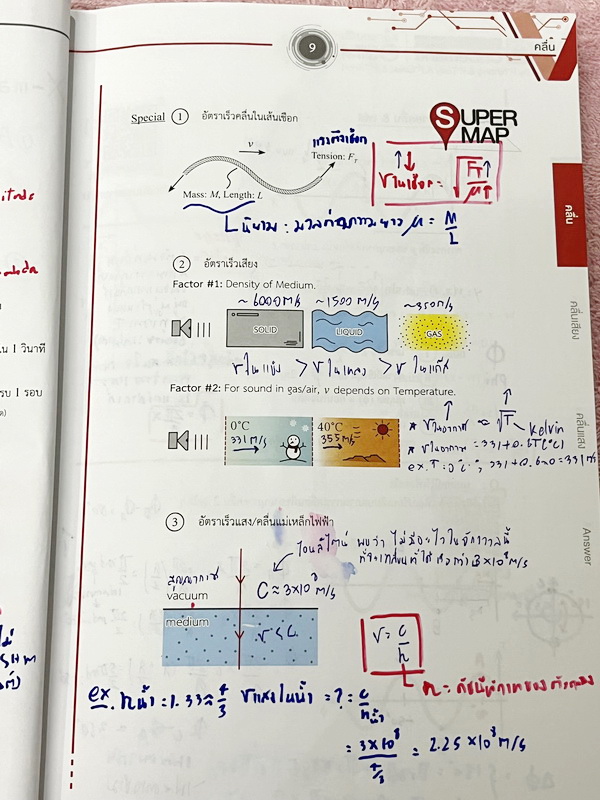 9
คลื่น
Special 1 อัตราเร็วคลื่นในเส้นเชือก
SUPER
MAP
v
แรงตึงเชือก
Tension: F_T
Mass: M, Length: L
v ในเชือก = √(F_T/μ)
นิยาม : มวลต่อความยาว μ = M/L
คลื่น
2 อัตราเร็วเสียง
Factor #1: Density of Medium.
~6000 m/s ~1500 m/s ~350m/s
SOLID LIQUID GAS
v ในแข็ง > v ในเหลว > v ในแก๊ส
คลื่นเสียง
Factor #2: For sound in gas/air, v depends on Temperature.
0°C 40°C
331 m/s 355 m/s
* v ในอากาศ ∝ √T Kelvin
* v ในอากาศ = 331+0.6T(°C)
ex. T=0°C ; 331+0.6×0 = 331 m/s
คลื่นแสง
Answer
3 อัตราเร็วแสง/คลื่นแม่เหล็กไฟฟ้า
ไอน์สไตน์ พบว่า ไม่มีอะไรในจักรวาลนี้
ที่จะเคลื่อนที่ได้เร็วกว่า 3×10⁸ m/s
สุญญากาศ
vacuum
C ≈ 3×10⁸ m/s
medium
v ≤ c
v = c/n
n = ดัชนีหักเหของตัวกลาง
ex. n น้ำ = 1.33 ≈ 4/3 v แสงในน้ำ = ? = c/n น้ำ
= 3×10⁸/(4/3) = 2.25×10⁸ m/s
น 1 วินาที
รบ 1 รอบ